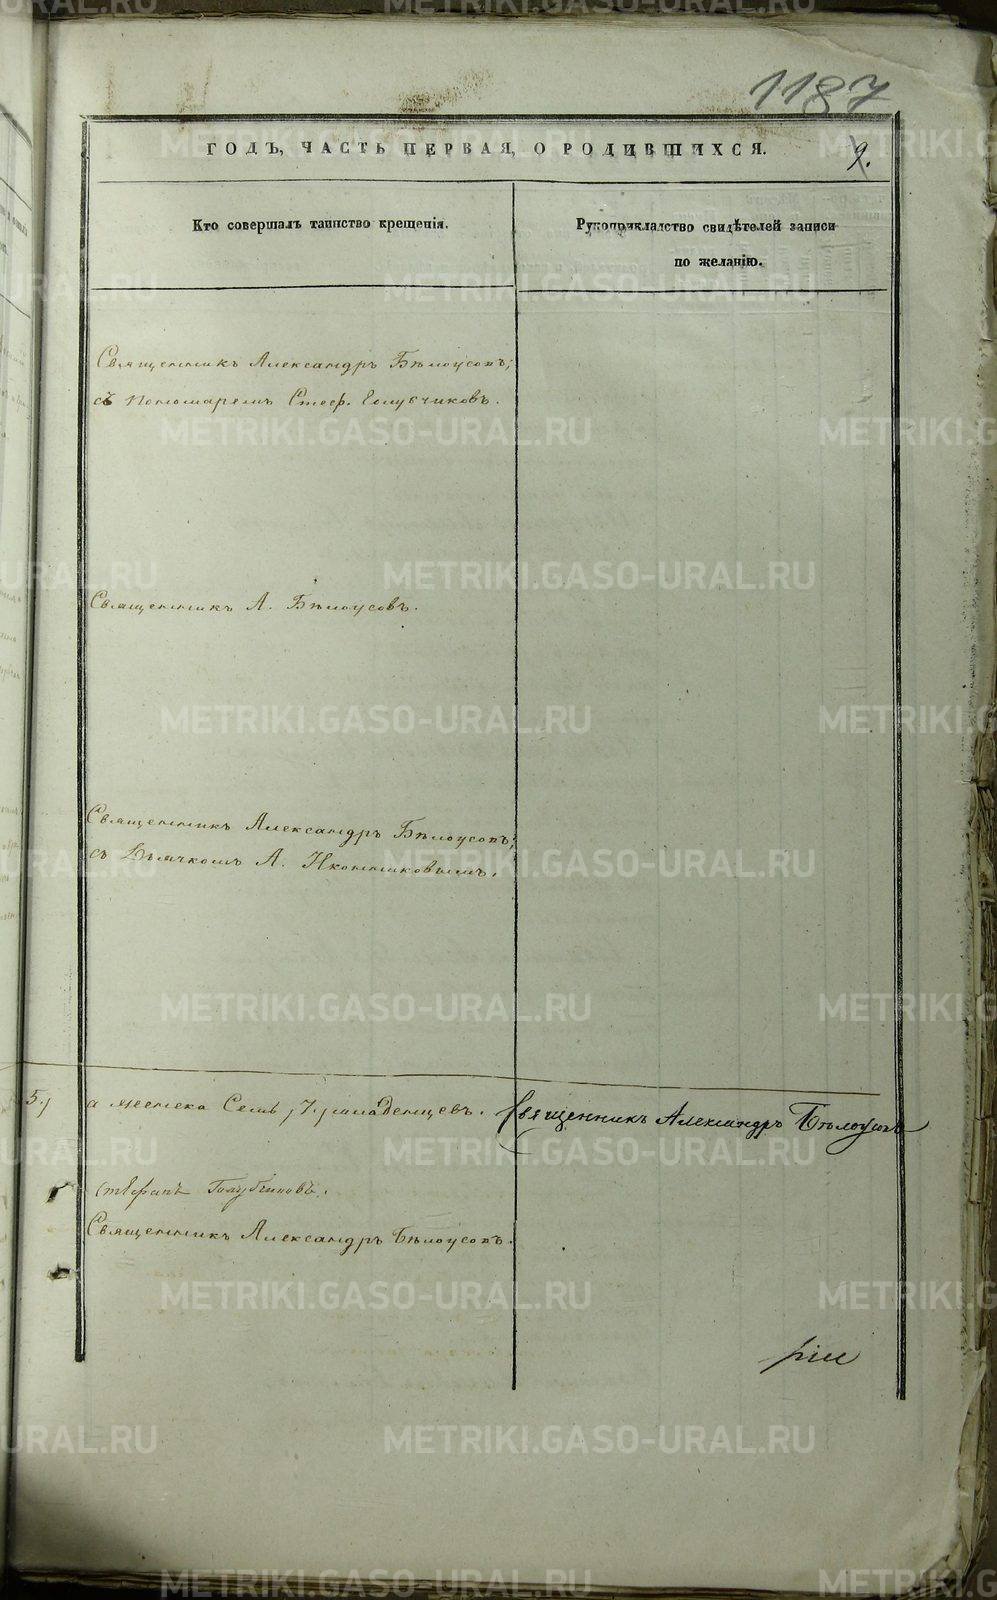 1187
ГОДЪ, ЧАСТЬ ПЕРВАЯ, О РОДИВШИХСЯ.
9.
Кто совершалъ таинство крещенія.
Рукоприкладство свидѣтелей записи
по желанію.
Священникъ Александръ Бѣлоусовъ;
съ Пономаремъ Стеф. Голубчиковъ.
Священникъ А. Бѣлоусовъ.
Священникъ Александръ Бѣлоусовъ;
съ Дьячкомъ А. Иконниковымъ.
5.) а женска Семь /7./ младенцевъ. Священникъ Александръ Бѣлоусовъ
Стефанъ Голубчиковъ.
Священникъ Александръ Бѣлоусовъ.
METRIKI.GASO-URAL.RU